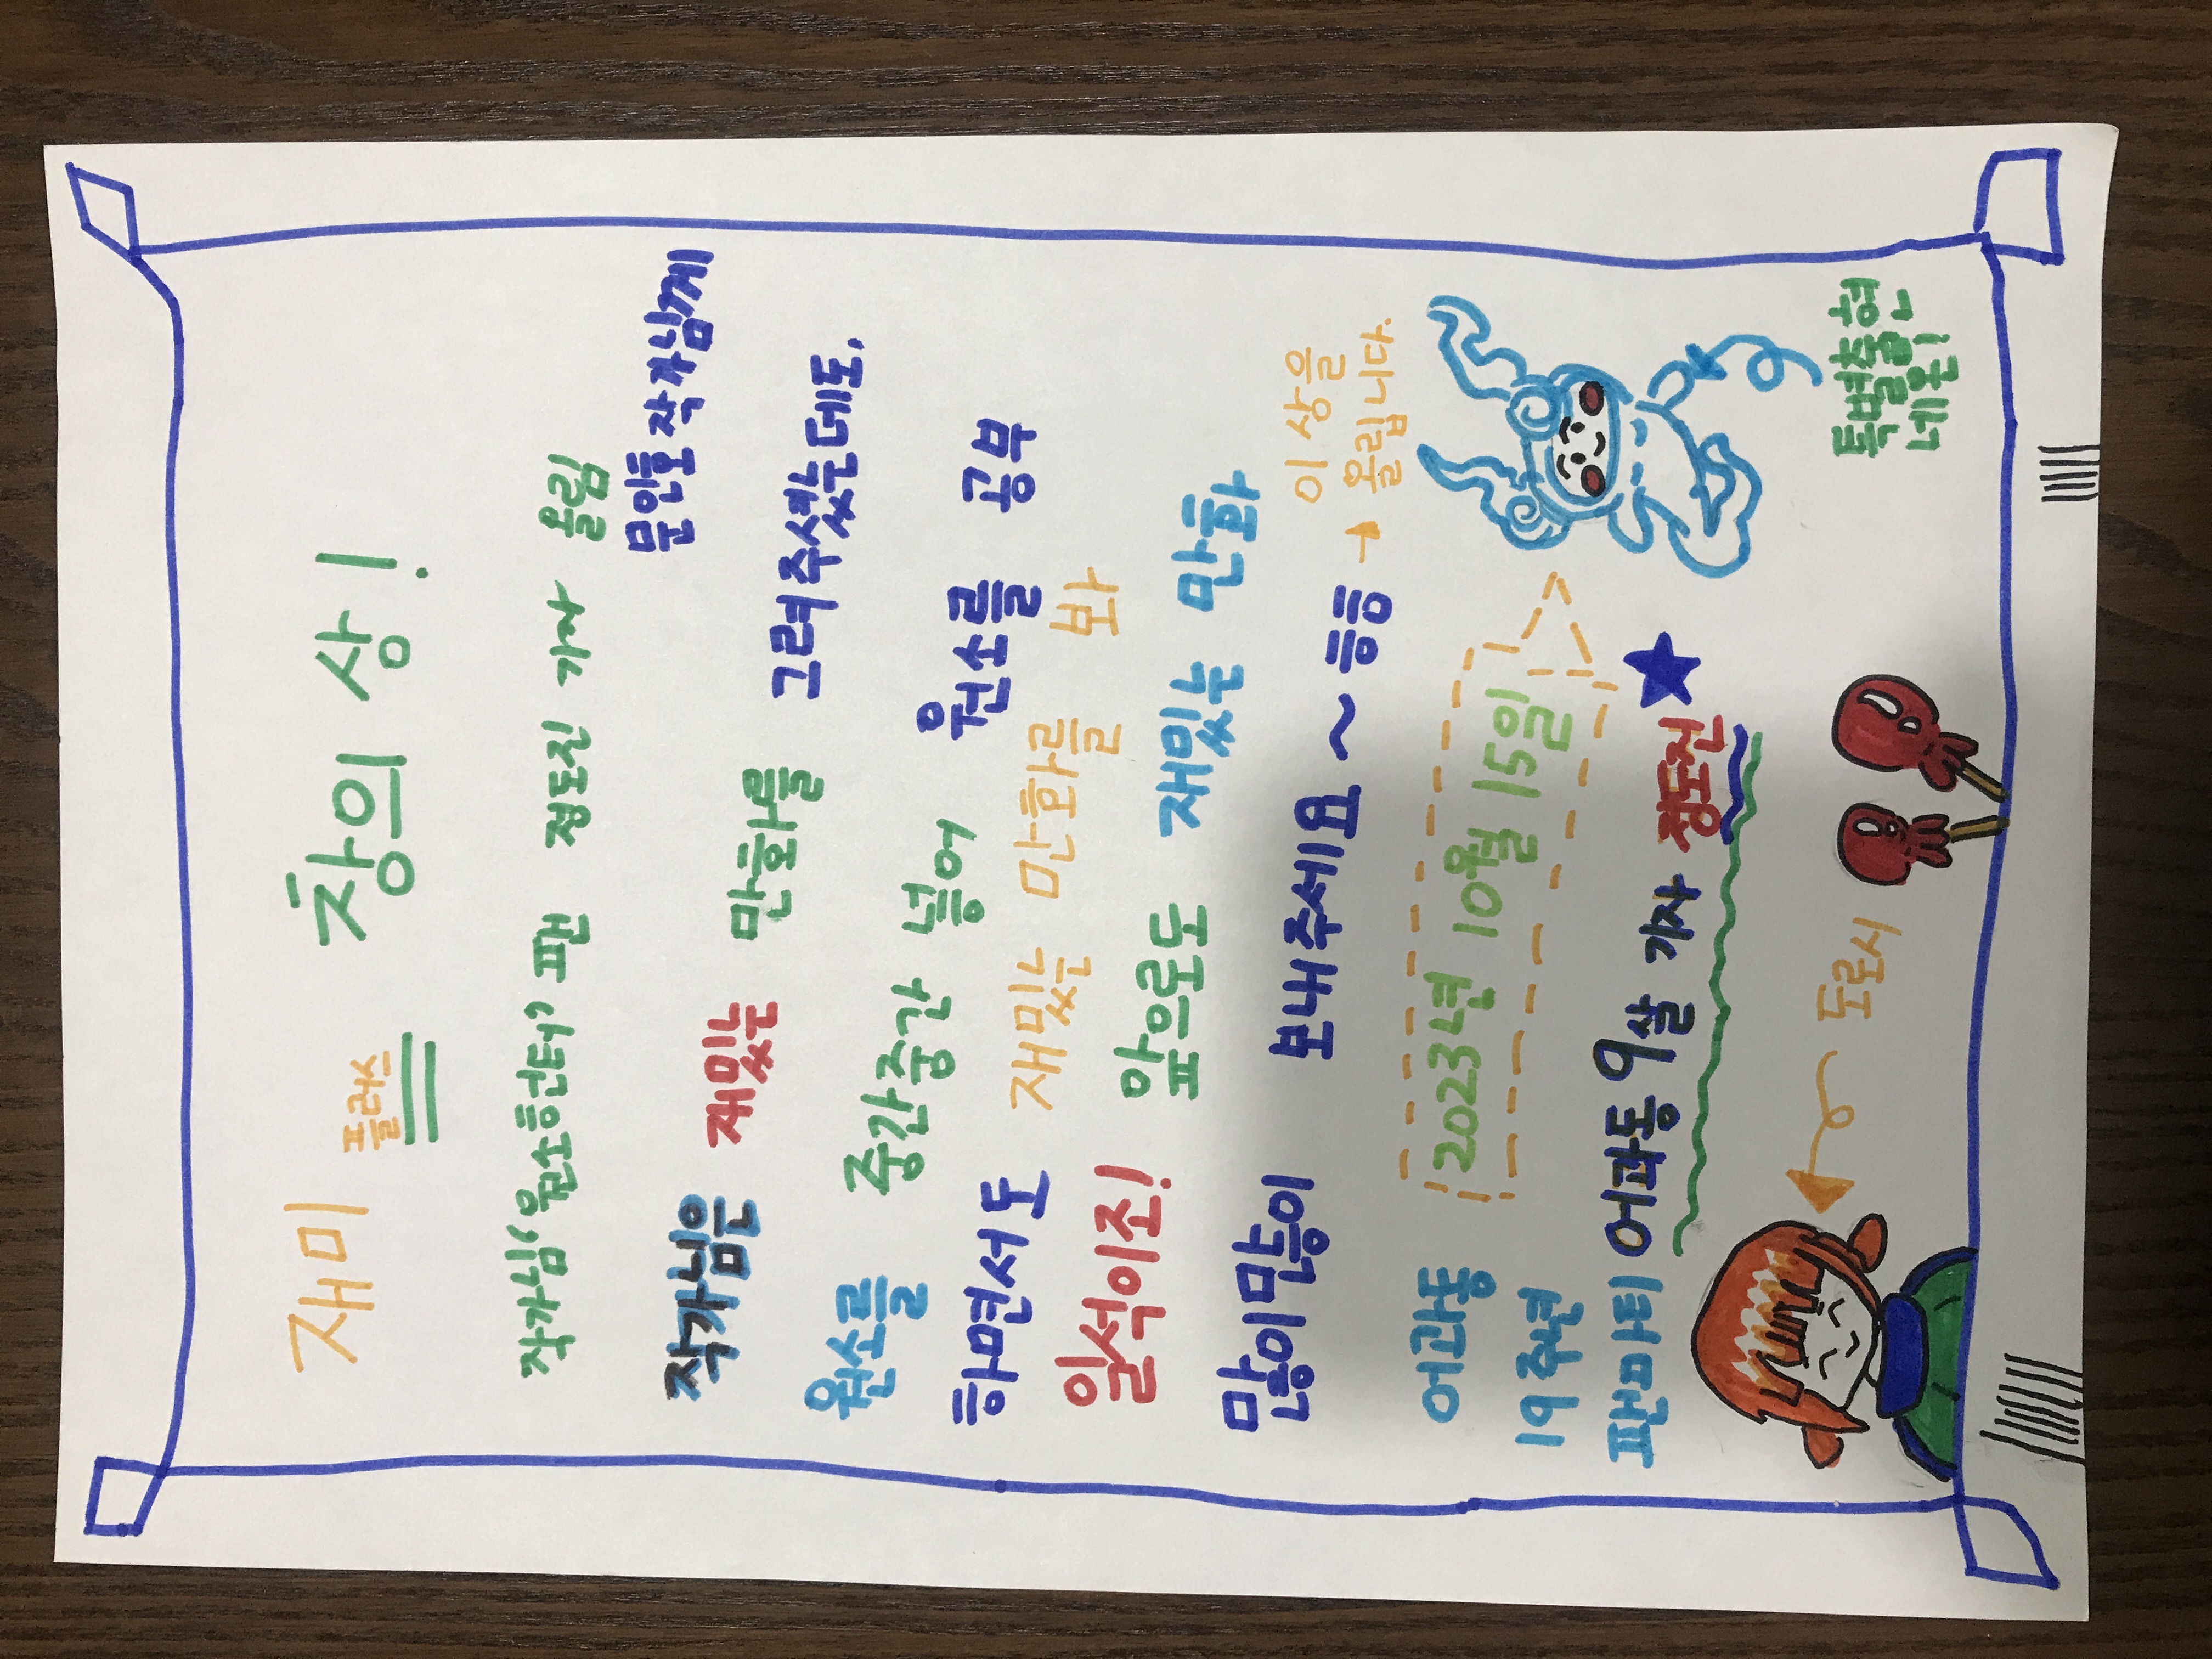 재미 플러스 창의 상!
작가님 '원소헌터' 팬 정도진 기자 올림
문인호 작가님께
작가님은 재밌는 만화를 그려주셨는데도,
원소를 중간중간 넣어 원소를 공부
하면서도 재밌는 만화를 봐
일석이조! 앞으로도 재밌는 만화
많이많이 보내주세요~ 등등 → 이 상을
올립니다.
어과동 2023년 10월 15일
19주년
팬파티 어과동 9살 기자 정도진
도로시
특별출현
네온!